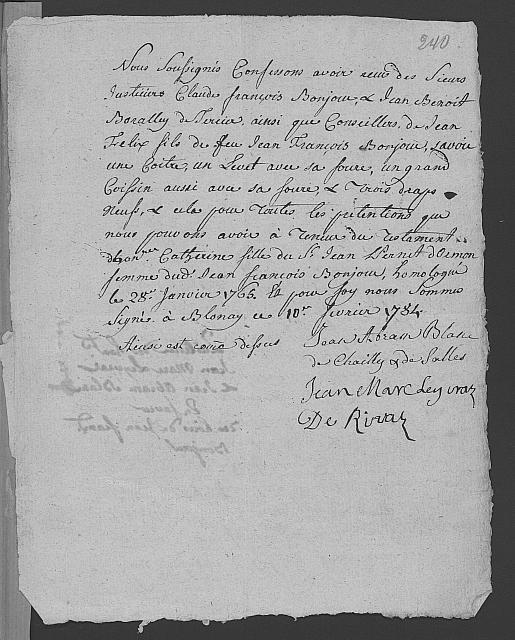 240
Nous Soussignés Confessons avoir reçu des Sieurs
Justiciers Claude françois Bonjour, & Jean Benoit
Boralley de Tercier, ainsi que Conseillers, de Jean
Felix fils de feu Jean François Bonjour, savoir
une Coitre, un Levet avec sa fourre, un grand
Coissin aussi avec sa fourre, & Trois draps
Neufs, & cela pour Toutes les pretentions que
nous pouvons avoir à Teneur du Testament
d'hon.ble Catherine fille du Sr. Jean d'Ormon
femme dud.t Jean françois Bonjour, homologué
le 28e. Janvier 1765. Et pour foy nous Somme
Signé à Blonay ce 10me. fevrier 1784.
Ainsi est come dessus
Jean Abram Blanc
de Chailly & de Salles
Jean Marc Leyvraz
De Rivaz